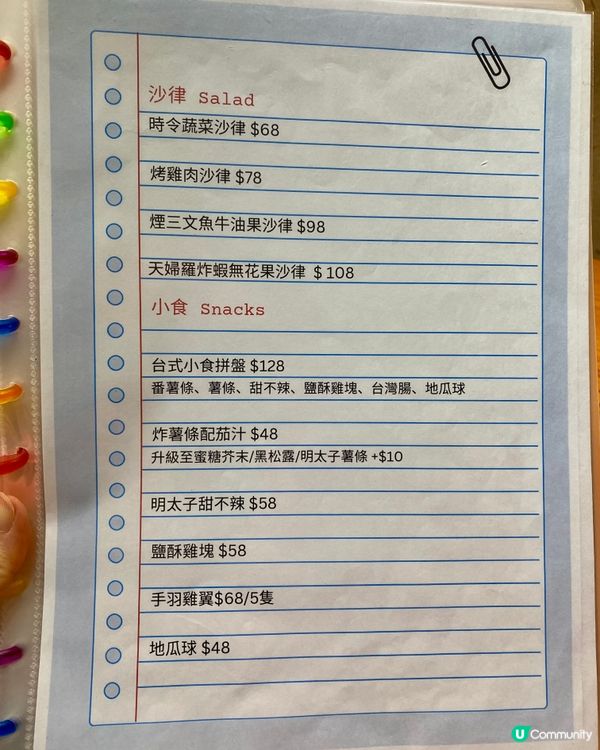 沙律 Salad
時令蔬菜沙律 $68
烤雞肉沙律 $78
煙三文魚牛油果沙律 $98
天婦羅炸蝦無花果沙律 $108
小食 Snacks
台式小食拼盤 $128
番薯條、薯條、甜不辣、鹽酥雞塊、台灣腸、地瓜球
炸薯條配茄汁 $48
升級至蜜糖芥末/黑松露/明太子薯條 +$10
明太子甜不辣 $58
鹽酥雞塊 $58
手羽雞翼$68/5隻
地瓜球 $48
U Community